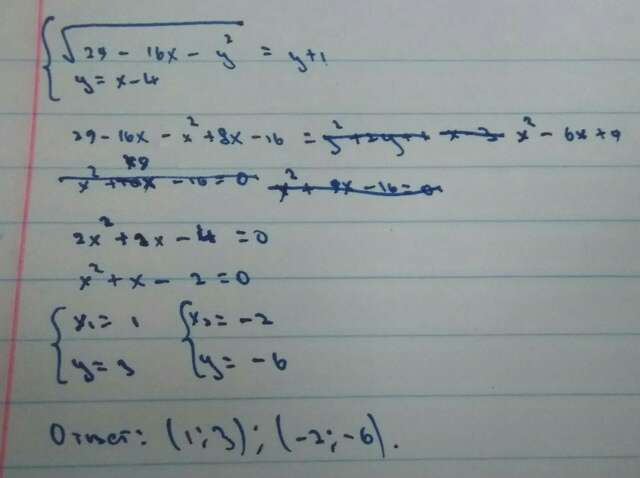 { √(29 - 16x - y²) = y+1
y = x-4
29 - 16x - x² + 8x - 16 = x² - 6x + 9
2x² + 2x - 4 = 0
x² + x - 2 = 0
{ x₁ = 1 { x₂ = -2
y = 3 y = -6
Ответ: (1; 3); (-2; -6).